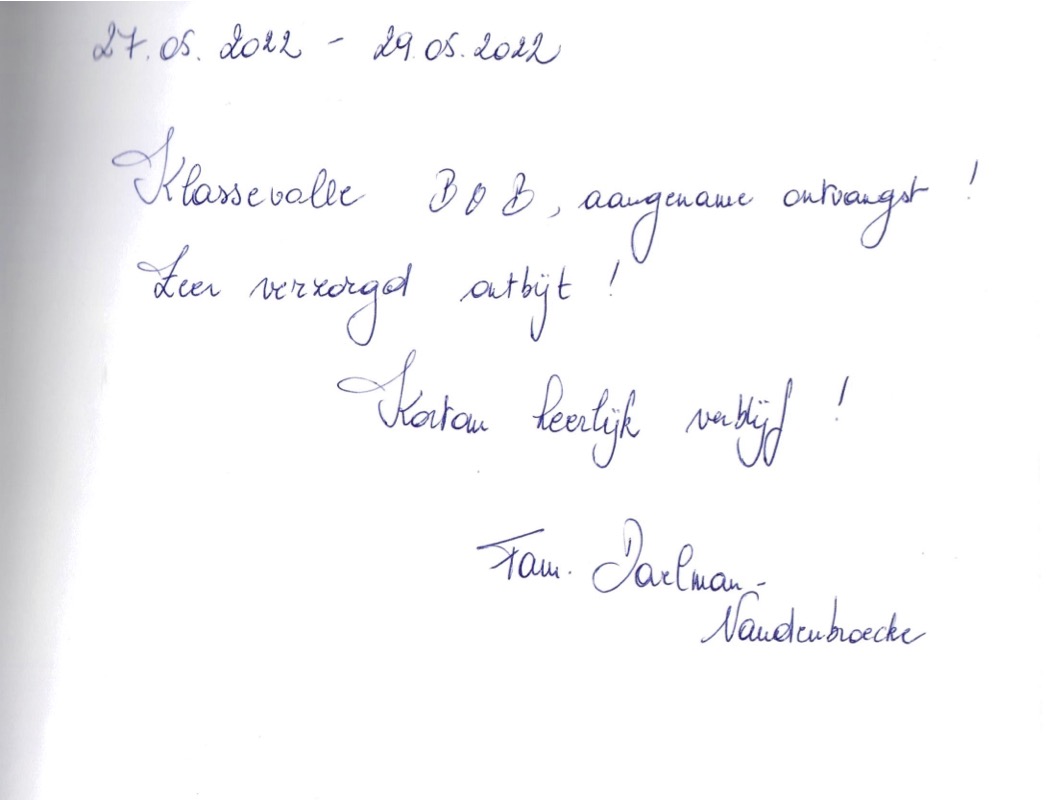 27.05.2022 - 29.05.2022
Klassevolle B&B, aangename ontvangst!
Zeer verzorgd ontbijt!
Kortom heerlijk verblijf!
Fam.
Vandenbroecke